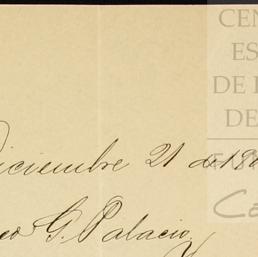 CEN
ES
DE
DE
Diciembre 21 de 190
co G. Palacio.